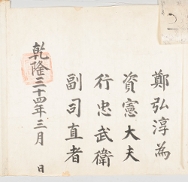 鄭弘淳為
資憲大夫
行忠武衛
副司直者
乾隆二十四年三月　日